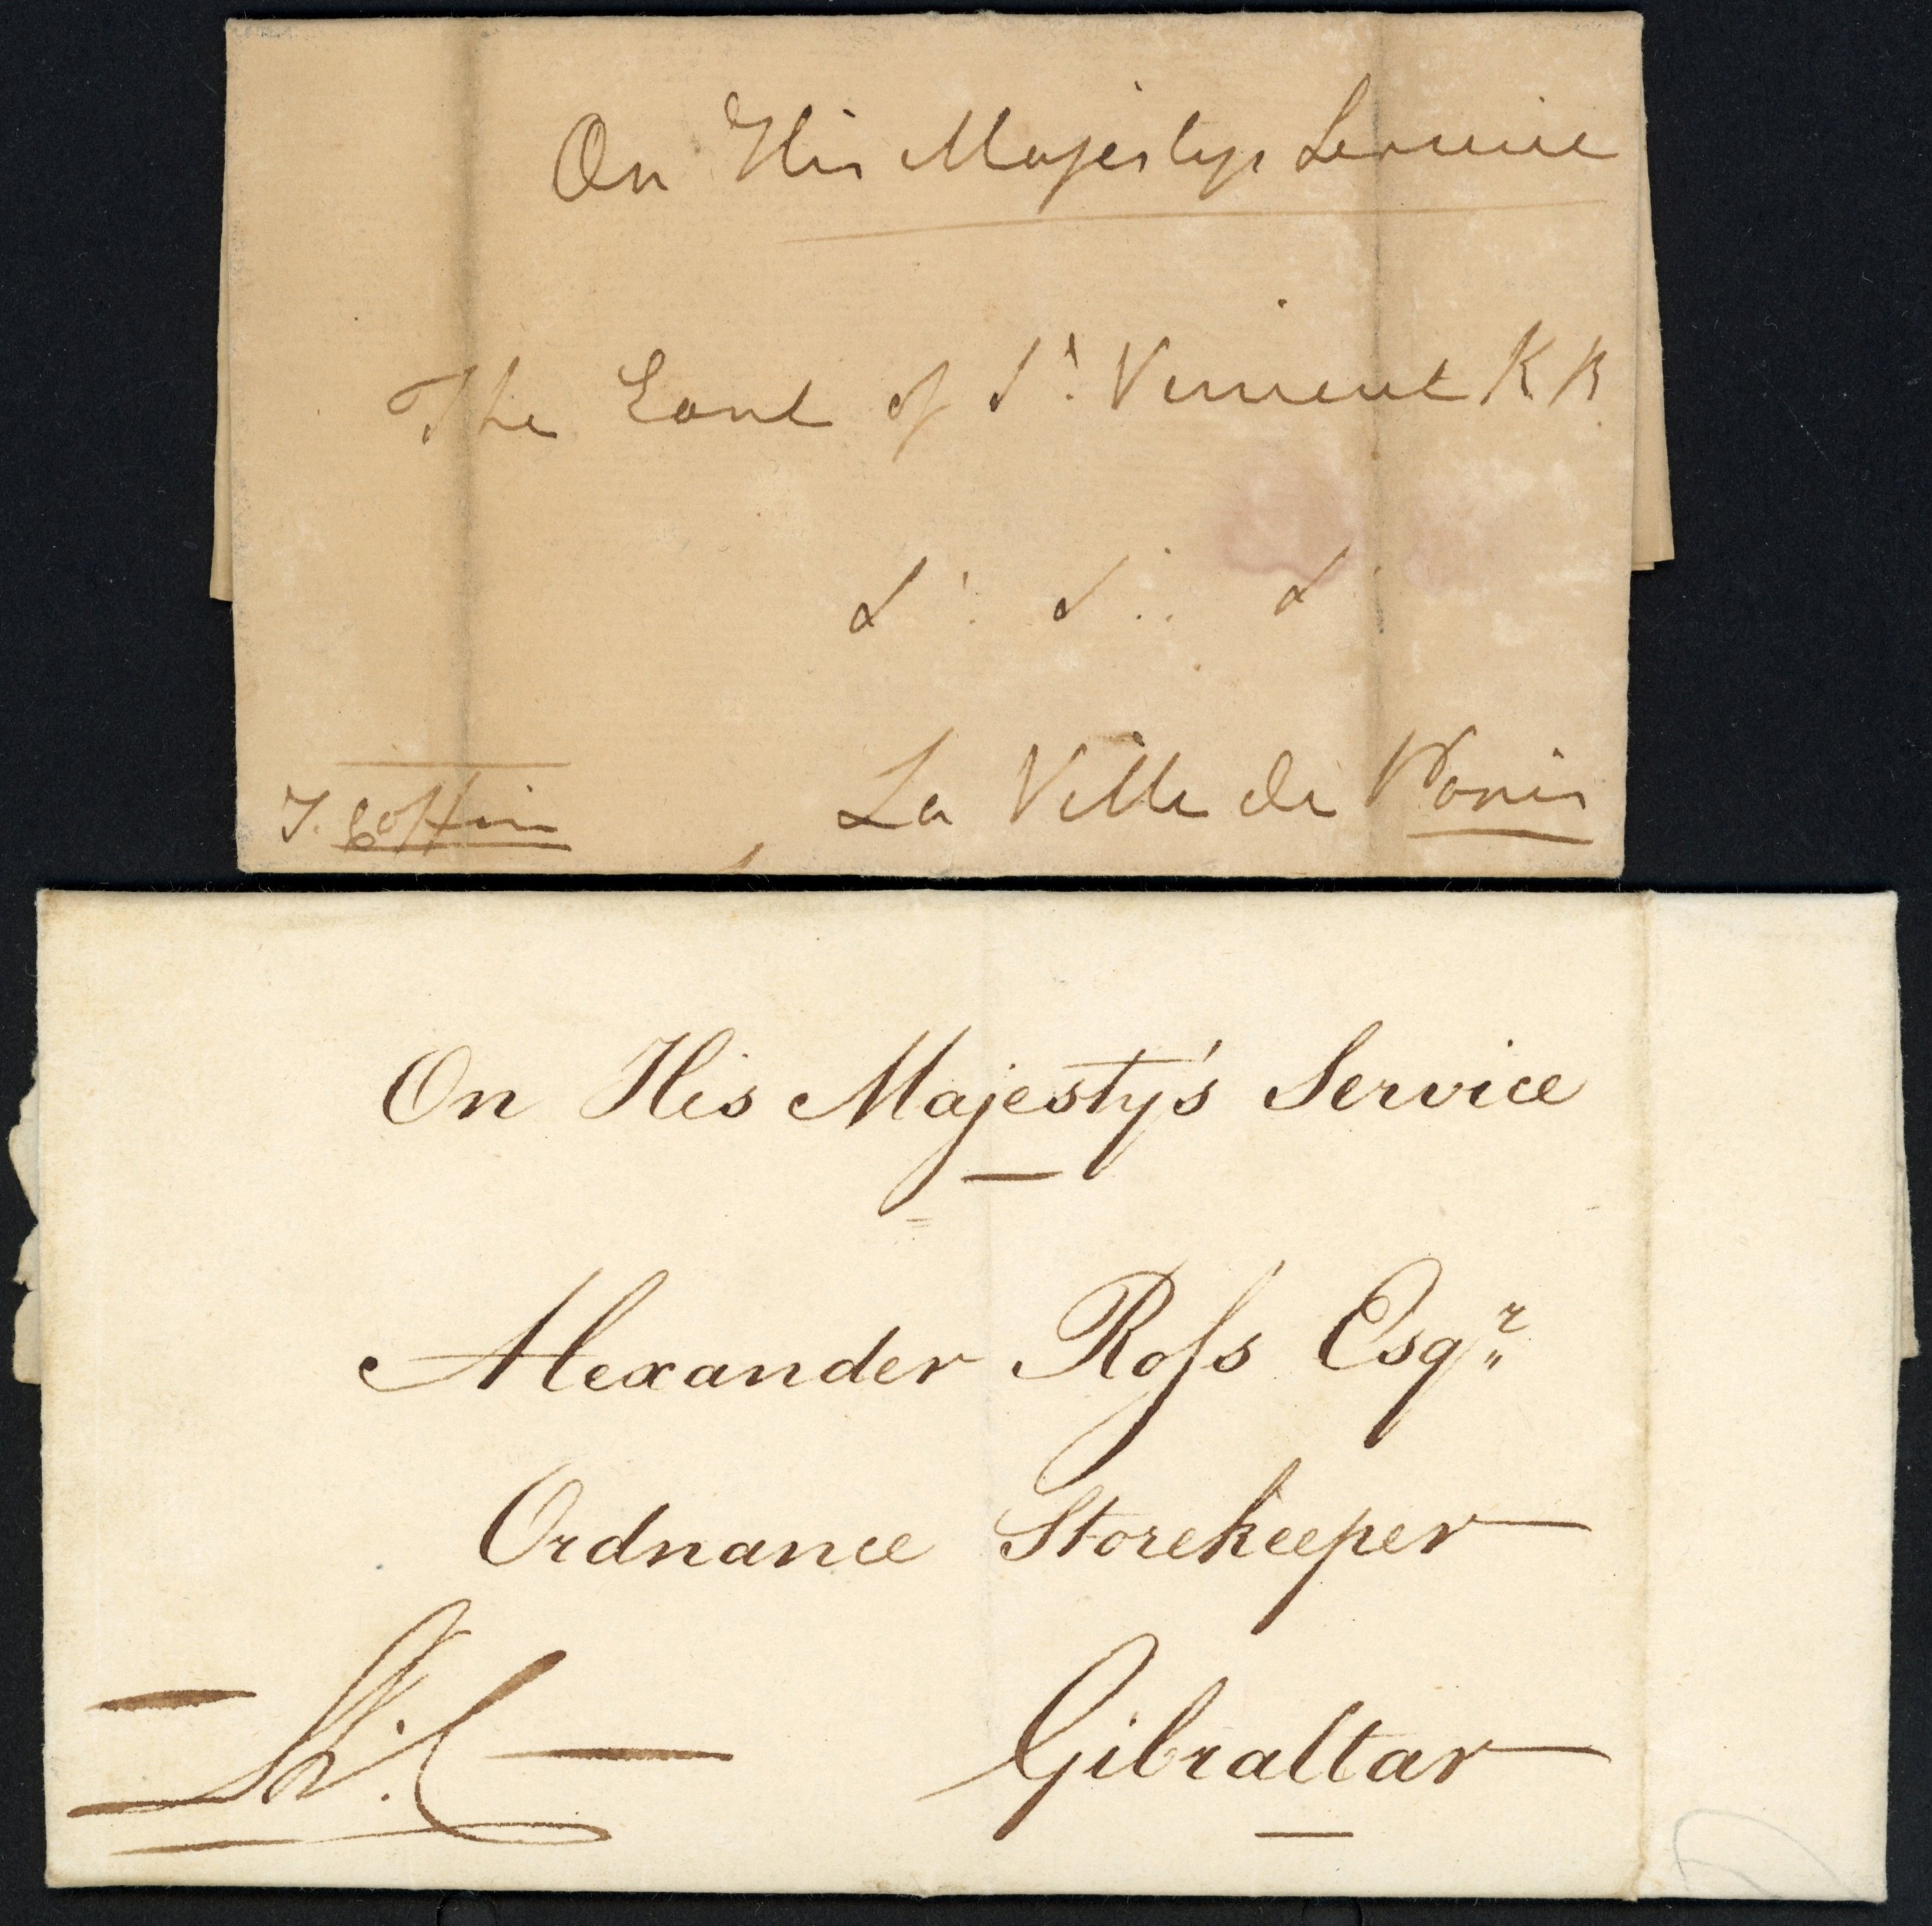 On His Majestys Service
The Earl of St. Vincent K B
&c. &c. &c.
La Ville de Paris
I. Coffin
On His Majesty's Service
Alexander Ross Esqr.
Ordnance Storekeeper
Gibraltar